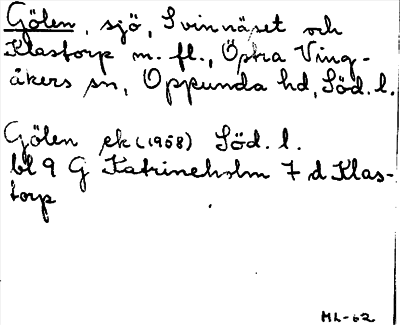 Gölen, sjö, Svinnäset och
Klastorp m. fl., Östra Ving-
åkers sn, Oppunda hd, Söd. l.
Gölen ek (1958) Söd. l.
bl 9 G Katrineholm 7 d Klas-
torp
ML-62